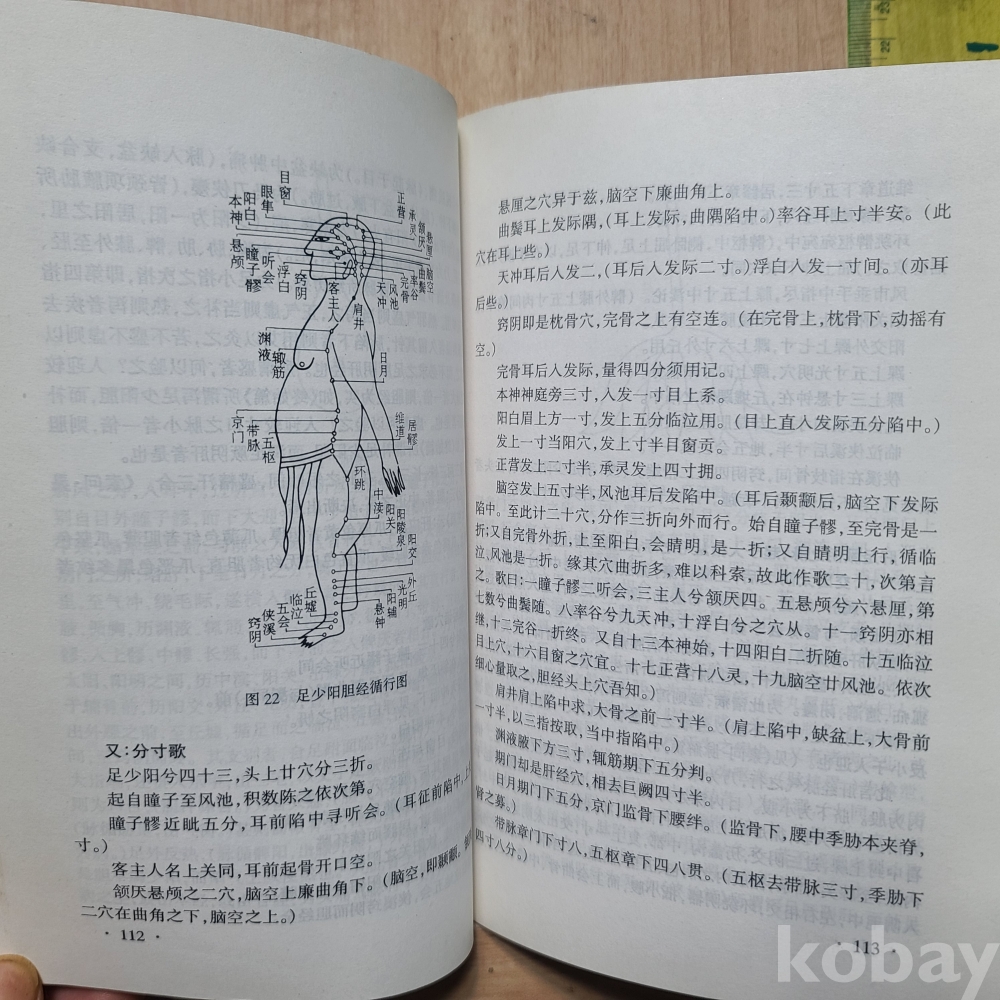 目窗
眼隼
阳白
本神
悬颅
瞳子髎
听会
浮白
窍阴
客主人
正营
承灵
颔厌
悬厘
脑空
曲鬓
率谷
天冲
完骨
风池
肩井
渊液
辄筋
日月
京门
带脉
五枢
维道
居髎
环跳
中渎
阳关
阳陵泉
阳交
外丘
光明
阳辅
悬钟
丘墟
临泣
五会
侠溪
窍阴
图22 足少阳胆经循行图
又:分寸歌
足少阳兮四十三,头上廿穴分三折。
起自瞳子至风池,积数陈之依次第。
瞳子髎近眦五分,耳前陷中寻听会。(耳征前陷中,上
寸。)
客主人名上关同,耳前起骨开口空。
颔厌悬颅之二穴,脑空上廉曲角下。(脑空,即颞颥。
二穴在曲角之下,脑空之上。)
· 112 ·
悬厘之穴异于兹,脑空下廉曲角上。
曲鬓耳上发际隅,(耳上发际,曲隅陷中。)率谷耳上寸半安。(此
穴在耳上些。)
天冲耳后入发二,(耳后入发际二寸。)浮白入发一寸间。(亦耳
后些。)
窍阴即是枕骨穴,完骨之上有空连。(在完骨上,枕骨下,动摇有
空。)
完骨耳后入发际,量得四分须用记。
本神神庭旁三寸,入发一寸目上系。
阳白眉上方一寸,发上五分临泣用。(目上直入发际五分陷中。)
发上一寸当阳穴,发上寸半目窗贡。
正营发上二寸半,承灵发上四寸拥。
脑空发上五寸半,风池耳后发陷中。(耳后颞颥后,脑空下发际
陷中。至此计二十穴,分作三折向外而行。始自瞳子髎,至完骨是一
折;又自完骨外折,上至阳白,会睛明,是一折;又自睛明上行,循临
泣、风池是一折。缘其穴曲折多,难以科索,故此作歌二十,次第言
之。歌曰:一瞳子髎二听会,三主人兮颔厌四。五悬颅兮六悬厘,第
七数兮曲鬓随。八率谷兮九天冲,十浮白兮之穴从。十一窍阴亦相
继,十二完谷一折终。又自十三本神始,十四阳白二折随。十五临泣
目上穴,十六目窗之穴宜。十七正营十八灵,十九脑空廿风池。依次
细心量取之,胆经头上穴吾知。)
肩井肩上陷中求,大骨之前一寸半。(肩上陷中,缺盆上,大骨前
一寸半,以三指按取,当中指陷中。)
渊液腋下方三寸,辄筋期下五分判。
期门却是肝经穴,相去巨阙四寸半。
日月期门下五分,京门监骨下腰绊。(监骨下,腰中季胁本夹脊,
肾之募。)
带脉章门下寸八,五枢章下四八贯。(五枢去带脉三寸,季胁下
四寸八分。)
· 113 ·
kobay